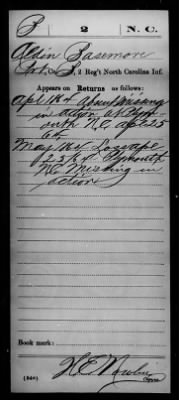 B 2 N. C.
Aldin Basemore
Pvt., 2 Reg't North Carolina Inf.
Appears on Returns as follows:
Apl 1864 Absent Missing
in action at Plym-
outh N.C. Apl 25
64.
May 1864 Loss
Plymouth
N.C. Missing in
action
Book mark:
(546)
Copyist.